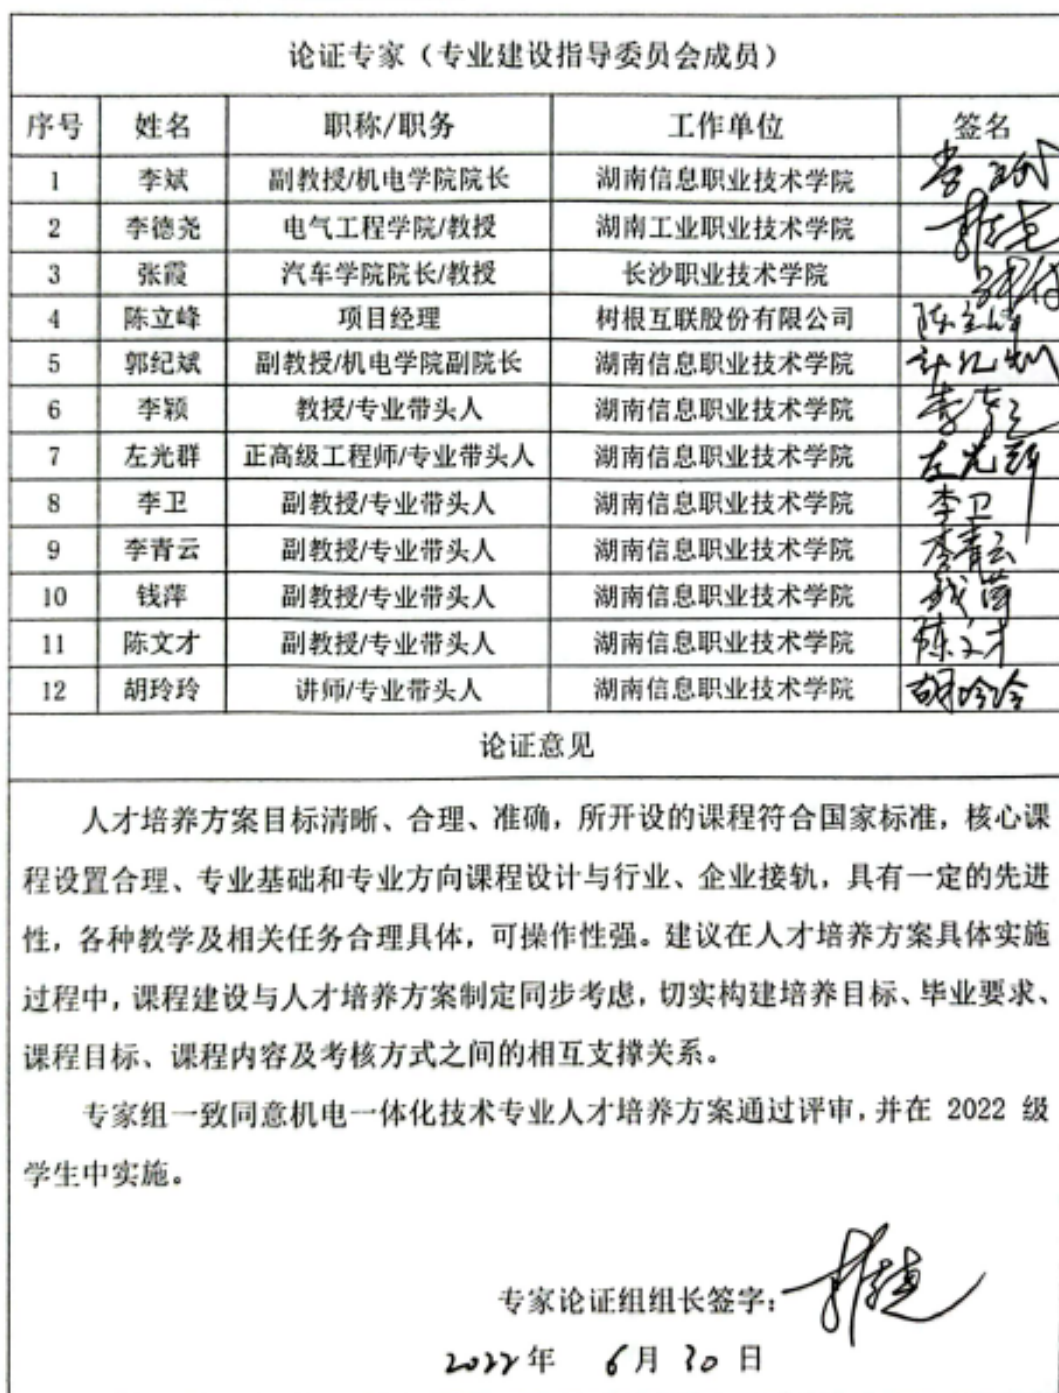 论证专家（专业建设指导委员会成员）
序号 姓名 职称/职务 工作单位 签名
1 李斌 副教授/机电学院院长 湖南信息职业技术学院
2 李德尧 电气工程学院/教授 湖南工业职业技术学院
3 张霞 汽车学院院长/教授 长沙职业技术学院
4 陈立峰 项目经理 树根互联股份有限公司 陈立峰
5 郭纪斌 副教授/机电学院副院长 湖南信息职业技术学院
6 李颖 教授/专业带头人 湖南信息职业技术学院
7 左光群 正高级工程师/专业带头人 湖南信息职业技术学院 左光群
8 李卫 副教授/专业带头人 湖南信息职业技术学院 李卫
9 李青云 副教授/专业带头人 湖南信息职业技术学院 李青云
10 钱萍 副教授/专业带头人 湖南信息职业技术学院 钱萍
11 陈文才 副教授/专业带头人 湖南信息职业技术学院 陈文才
12 胡玲玲 讲师/专业带头人 湖南信息职业技术学院 胡玲玲
论证意见
人才培养方案目标清晰、合理、准确，所开设的课程符合国家标准，核心课
程设置合理、专业基础和专业方向课程设计与行业、企业接轨，具有一定的先进
性，各种教学及相关任务合理具体，可操作性强。建议在人才培养方案具体实施
过程中，课程建设与人才培养方案制定同步考虑，切实构建培养目标、毕业要求、
课程目标、课程内容及考核方式之间的相互支撑关系。
专家组一致同意机电一体化技术专业人才培养方案通过评审，并在 2022 级
学生中实施。
专家论证组组长签字：
2022年 6月30日